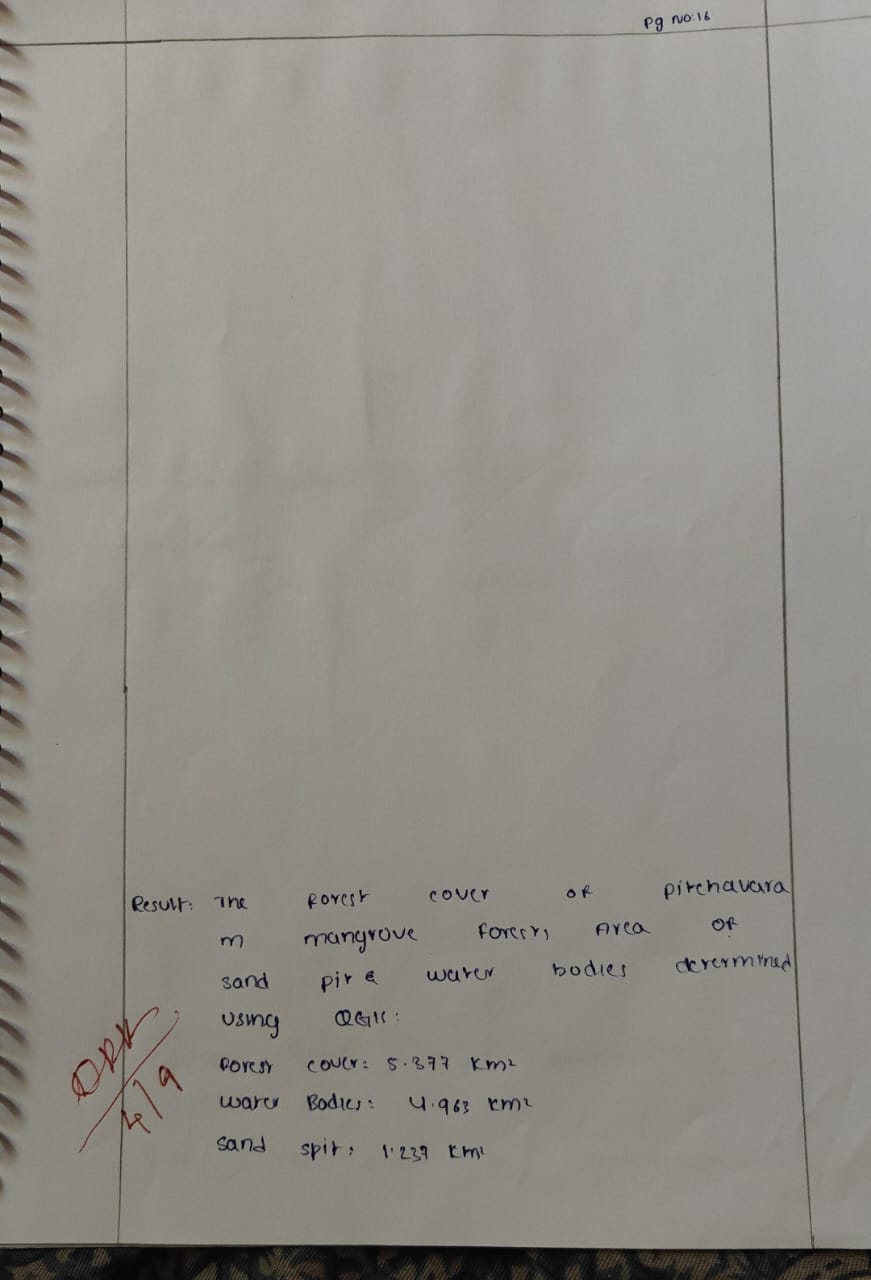 Pg NO:16
Result: The forest cover of pitchavara
m mangrove forest, Area of
sand pit & water bodies determined
using QGIS:
Forest cover: 5.377 Km²
Water Bodies: 4.963 Km²
Sand spit: 1.237 Km²
4/9